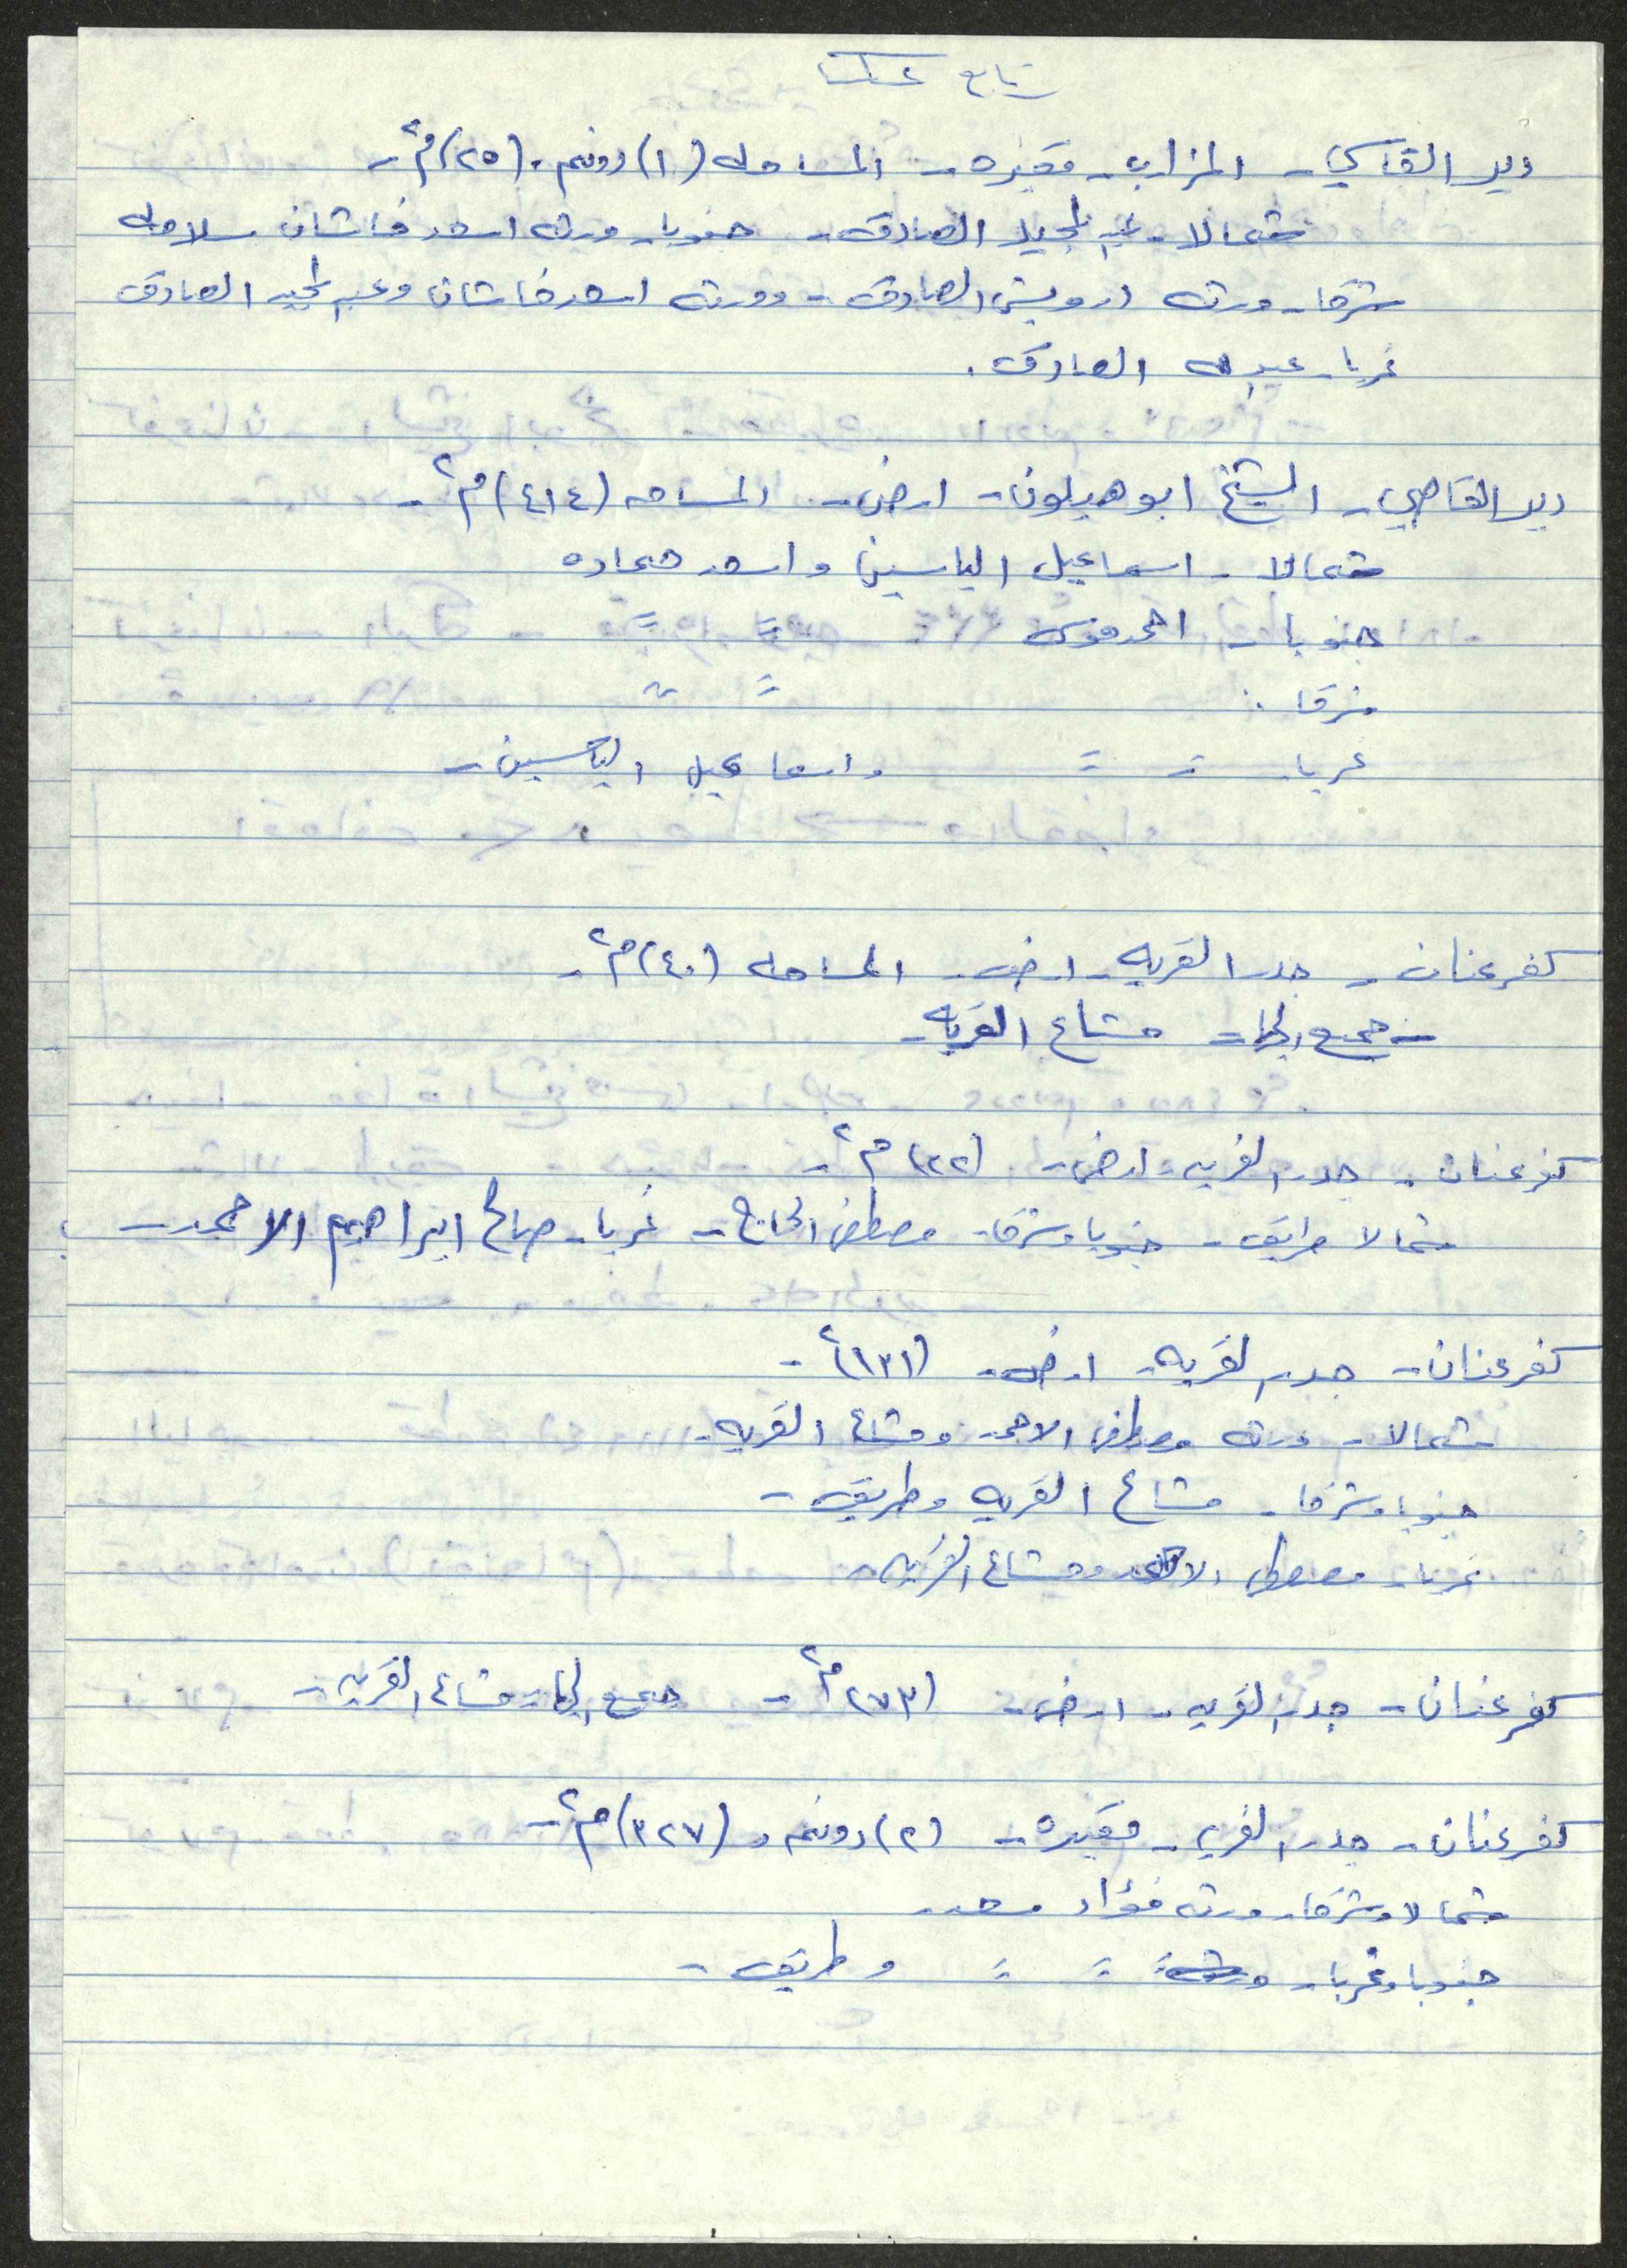 تابع عكا
دير القاسي - المزارب - مقبره - المساحه (١) دونم . (٢٥) م٢ -
شمالا - عبد المجيد الصادق - جنوبا - ورثه اسعد خاشان سلامه
شرقا - ورثه درويش الصادق - وورثه اسعد خاشان وعبد المجيد الصادق
غربا - عبد الله الصادق .
دير القاصي - الشيخ ابو هيلون - ارض - المساحه (٤١٤) م٢ -
شمالا - اسماعيل الياسين واسعد حماده
جنوبا - احمد موسى = =
شرقا . = =
غربا - = = واسماعيل الياسين -
كفر عنان - جدر القريه - ارض - المساحه (٤٠) م٢ -
- جميع الجهات مشاع القريه -
كفر عنان - جدر القريه - ارض - (٣٢) م٢ -
شمالا طريق - جنوبا وشرقا - مصطفى الحاج - غربا - صالح ابراهيم الاحمد -
كفر عنان - جدر القريه - ارض - (١٣١)٢ -
شمالا - ورثه مصطفى الاحمد ومشاع القريه -
جنوبا وشرقا - مشاع القريه وطريق -
غربا - مصطفى الاحمد ومشاع القريه -
كفر عنان - جدر القريه - ارض - (٢٧٣) م٢ - جميع الجهات مشاع القريه -
كفر عنان - جدر القريه - مقبره - (٢) دونم و (٣٢٧) م٢ -
شمالا وشرقا - ورثه فؤاد سعد -
جنوبا وغربا - ورثه = = وطريق -